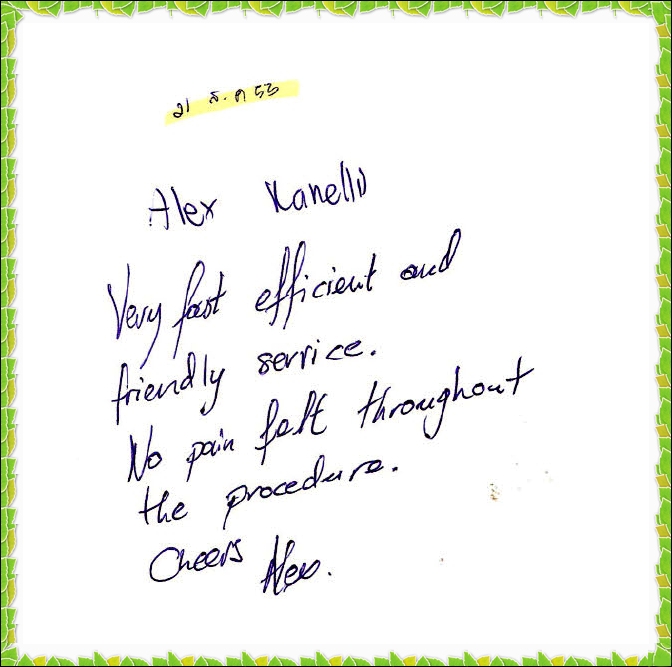 21 ส.ค 53
Alex Kanellu
Very fast efficient and
friendly service.
No pain felt throughout
the procedure.
Cheers Alex.